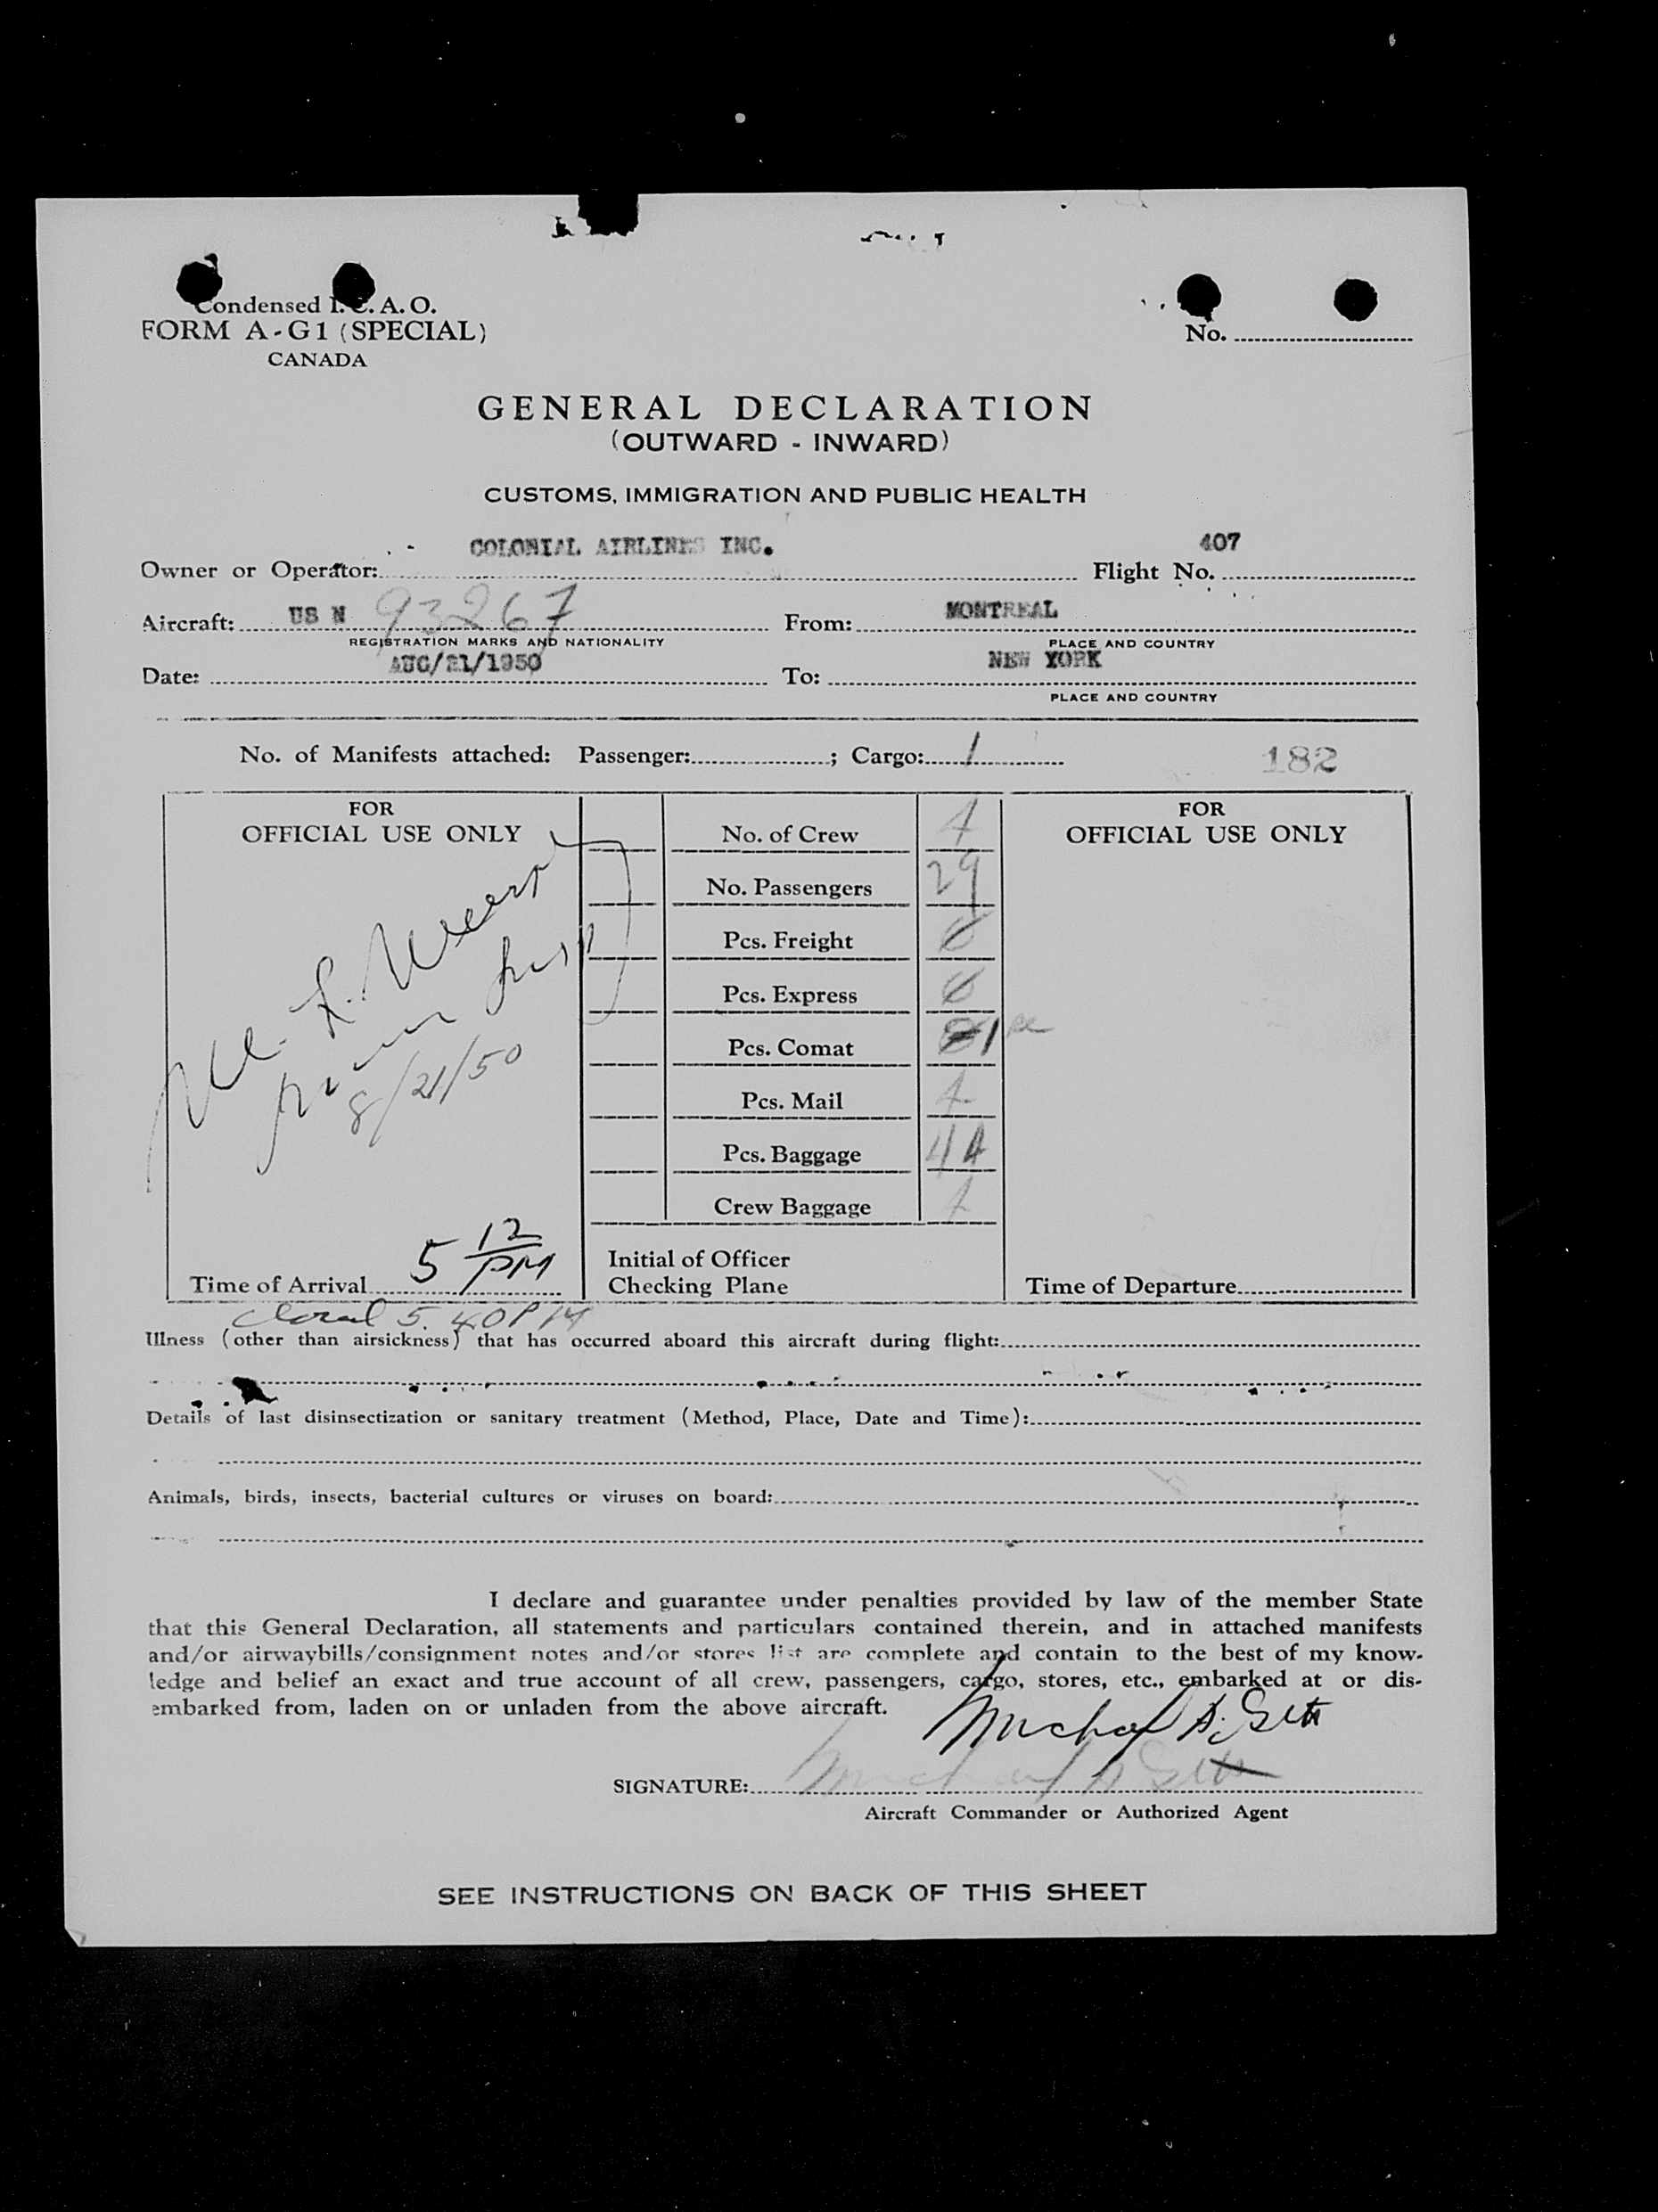 Condensed I.C.A.O.
FORM A-G1 (SPECIAL)
CANADA
No.
GENERAL DECLARATION
(OUTWARD - INWARD)
CUSTOMS, IMMIGRATION AND PUBLIC HEALTH
Owner or Operator: COLONIAL AIRLINES INC. Flight No. 407
Aircraft: US N 93267 From: MONTREAL
REGISTRATION MARKS AND NATIONALITY PLACE AND COUNTRY
Date: AUG/21/1950 To: NEW YORK
PLACE AND COUNTRY
No. of Manifests attached: Passenger: ; Cargo: 1 182
FOR
OFFICIAL USE ONLY
8/21/50
Time of Arrival 5 12 PM
No. of Crew 4
No. Passengers 29
Pcs. Freight 0
Pcs. Express 0
Pcs. Comat 1
Pcs. Mail
Pcs. Baggage 44
Crew Baggage
Initial of Officer
Checking Plane
FOR
OFFICIAL USE ONLY
Time of Departure
5.40 PM
Illness (other than airsickness) that has occurred aboard this aircraft during flight:
Details of last disinsectization or sanitary treatment (Method, Place, Date and Time):
Animals, birds, insects, bacterial cultures or viruses on board:
I declare and guarantee under penalties provided by law of the member State
that this General Declaration, all statements and particulars contained therein, and in attached manifests
and/or airwaybills/consignment notes and/or stores list are complete and contain to the best of my know-
ledge and belief an exact and true account of all crew, passengers, cargo, stores, etc., embarked at or dis-
embarked from, laden on or unladen from the above aircraft.
SIGNATURE:
Aircraft Commander or Authorized Agent
SEE INSTRUCTIONS ON BACK OF THIS SHEET